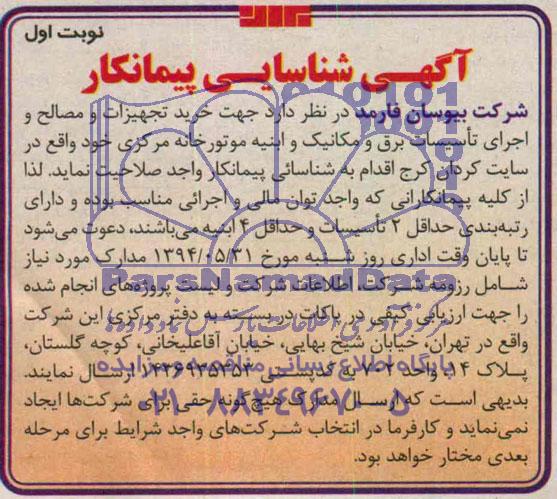 نوبت اول
آگهی شناسایی پیمانکار
شرکت بیوسان فارمد در نظر دارد جهت خرید تجهیزات و مصالح و
اجرای تأسیسات برق و مکانیک و ابنیه موتورخانه مرکزی خود واقع در
سایت کردان کرج اقدام به شناسائی پیمانکار واجد صلاحیت نماید. لذا
از کلیه پیمانکارانی که واجد توان مالی و اجرائی مناسب بوده و دارای
رتبه‌بندی حداقل ۲ تأسیسات و حداقل ۴ ابنیه می‌باشند، دعوت می‌شود
تا پایان وقت اداری روز شنبه مورخ ۱۳۹۴/۰۵/۳۱ مدارک مورد نیاز
شامل رزومه شرکت، اطلاعات شرکت و لیست پروژه‌های انجام شده
را جهت ارزیابی کیفی در پاکات دربسته به دفتر مرکزی این شرکت
واقع در تهران، خیابان شیخ بهایی، خیابان آقاعلیخانی، کوچه گلستان،
پلاک ۱۴ واحد ۲-۷ با کدپستی ارسال نمایند.
بدیهی است که ارسال مدارک هیچ‌گونه حقی برای شرکت‌ها ایجاد
نمی‌نماید و کارفرما در انتخاب شرکت‌های واجد شرایط برای مرحله
بعدی مختار خواهد بود.
ParsNamadData
مرکز فرآوری اطلاعات پارس نماد داده ها
پایگاه اطلاع رسانی مناقصه و مزایده
۰۲۱-۸۸۳۴۹۶۷۰-۵